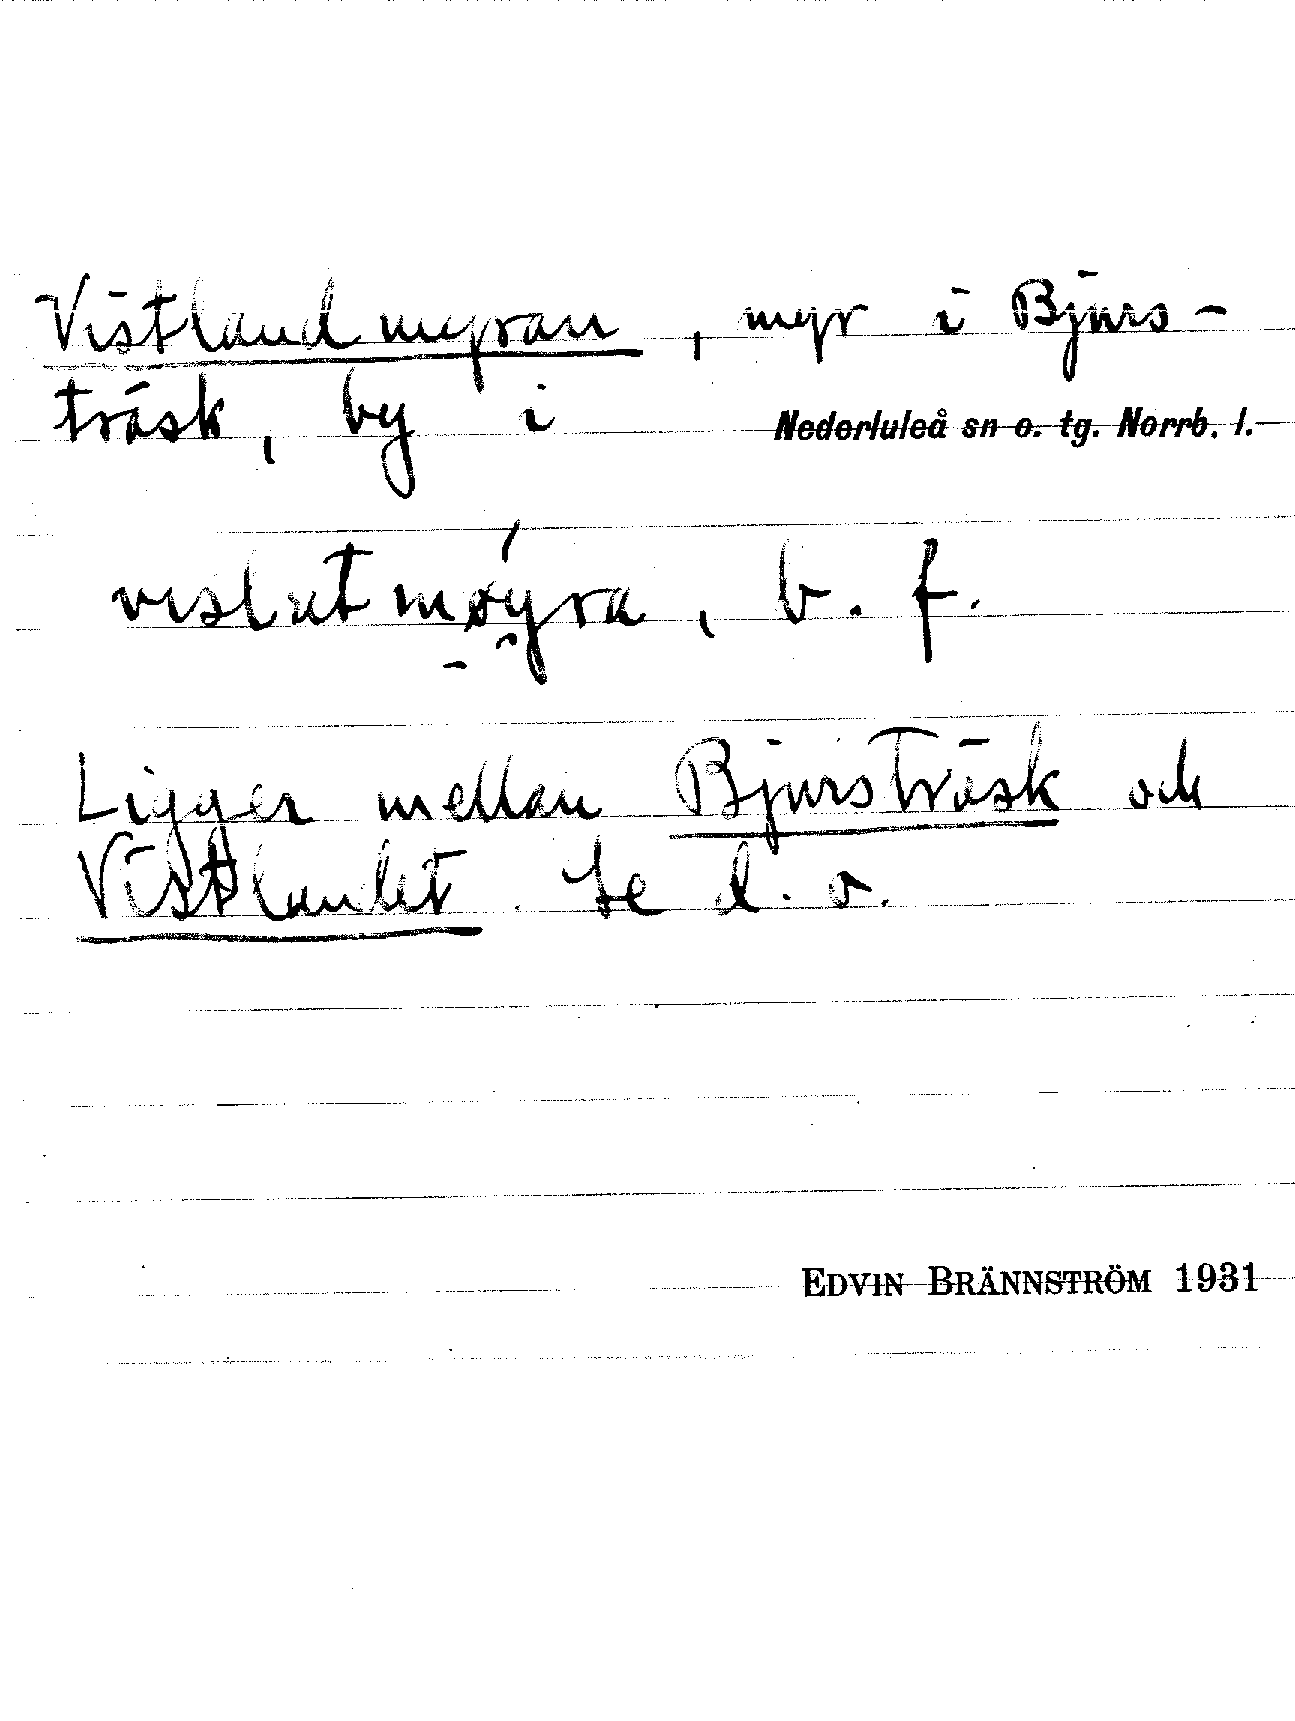 Vistlandmyran, myr i Bjurs-
träsk, by i Nederluleå sn o. tg. Norrb. l.
vislatmøyra, b. f.
Ligger mellan Bjursträsk och
Vistlandet. Se d. o.
EDVIN BRÄNNSTRÖM 1931